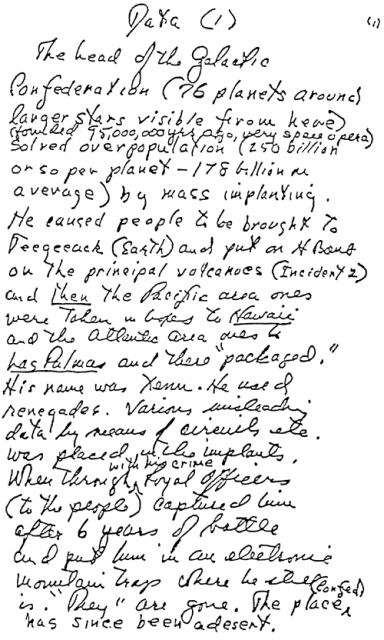 Data (1) (1)
The head of the Galactic
Confederation (76 planets around
larger stars visible from here)
(founded 95,000,000 yrs ago, very space opera)
solved overpopulation (250 billion
or so per planet - 178 billion on
average) by mass implanting.
He caused people to be brought to
Teegeeack (Earth) and put an H Bomb
on the principal volcanoes (Incident 2)
and then the Pacific area ones
were taken in boxes to Hawaii
and the Atlantic area ones to
Las Palmas and there "packaged."
His name was Xenu. He used
renegades. Various misleading
data by means of circuits etc.
was placed in the implants.
When through with his crime Loyal Officers
(to the people) captured him
after 6 years of battle
and put him in an electronic
mountain trap where he still
is. "They" are gone. The place (Confed)
has since been a desert.